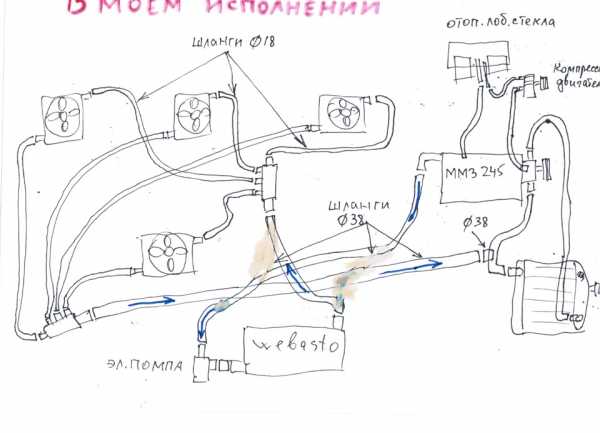 В МОЕМ ИСПОЛНЕНИИ
ШЛАНГИ Ф18
ОТОП. ЛОБ. СТЕКЛА
двигател
ММЗ 245
ШЛАНГИ
Ф38
Ф38
webasto
ЭЛ. ПОМПА